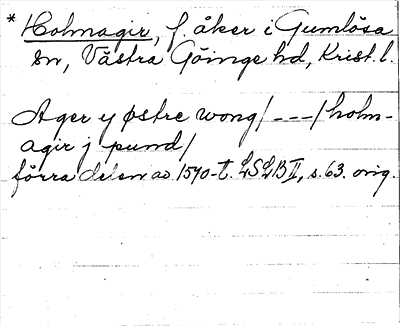 * Holmagir, f. åker i Gumlösa
sn, Västra Göinge hd, Krist. l.
Ager y østre wong/ - - - / holm-
agir j pund/
förra delen av 1570-t. LSLB II, s. 63. orig.